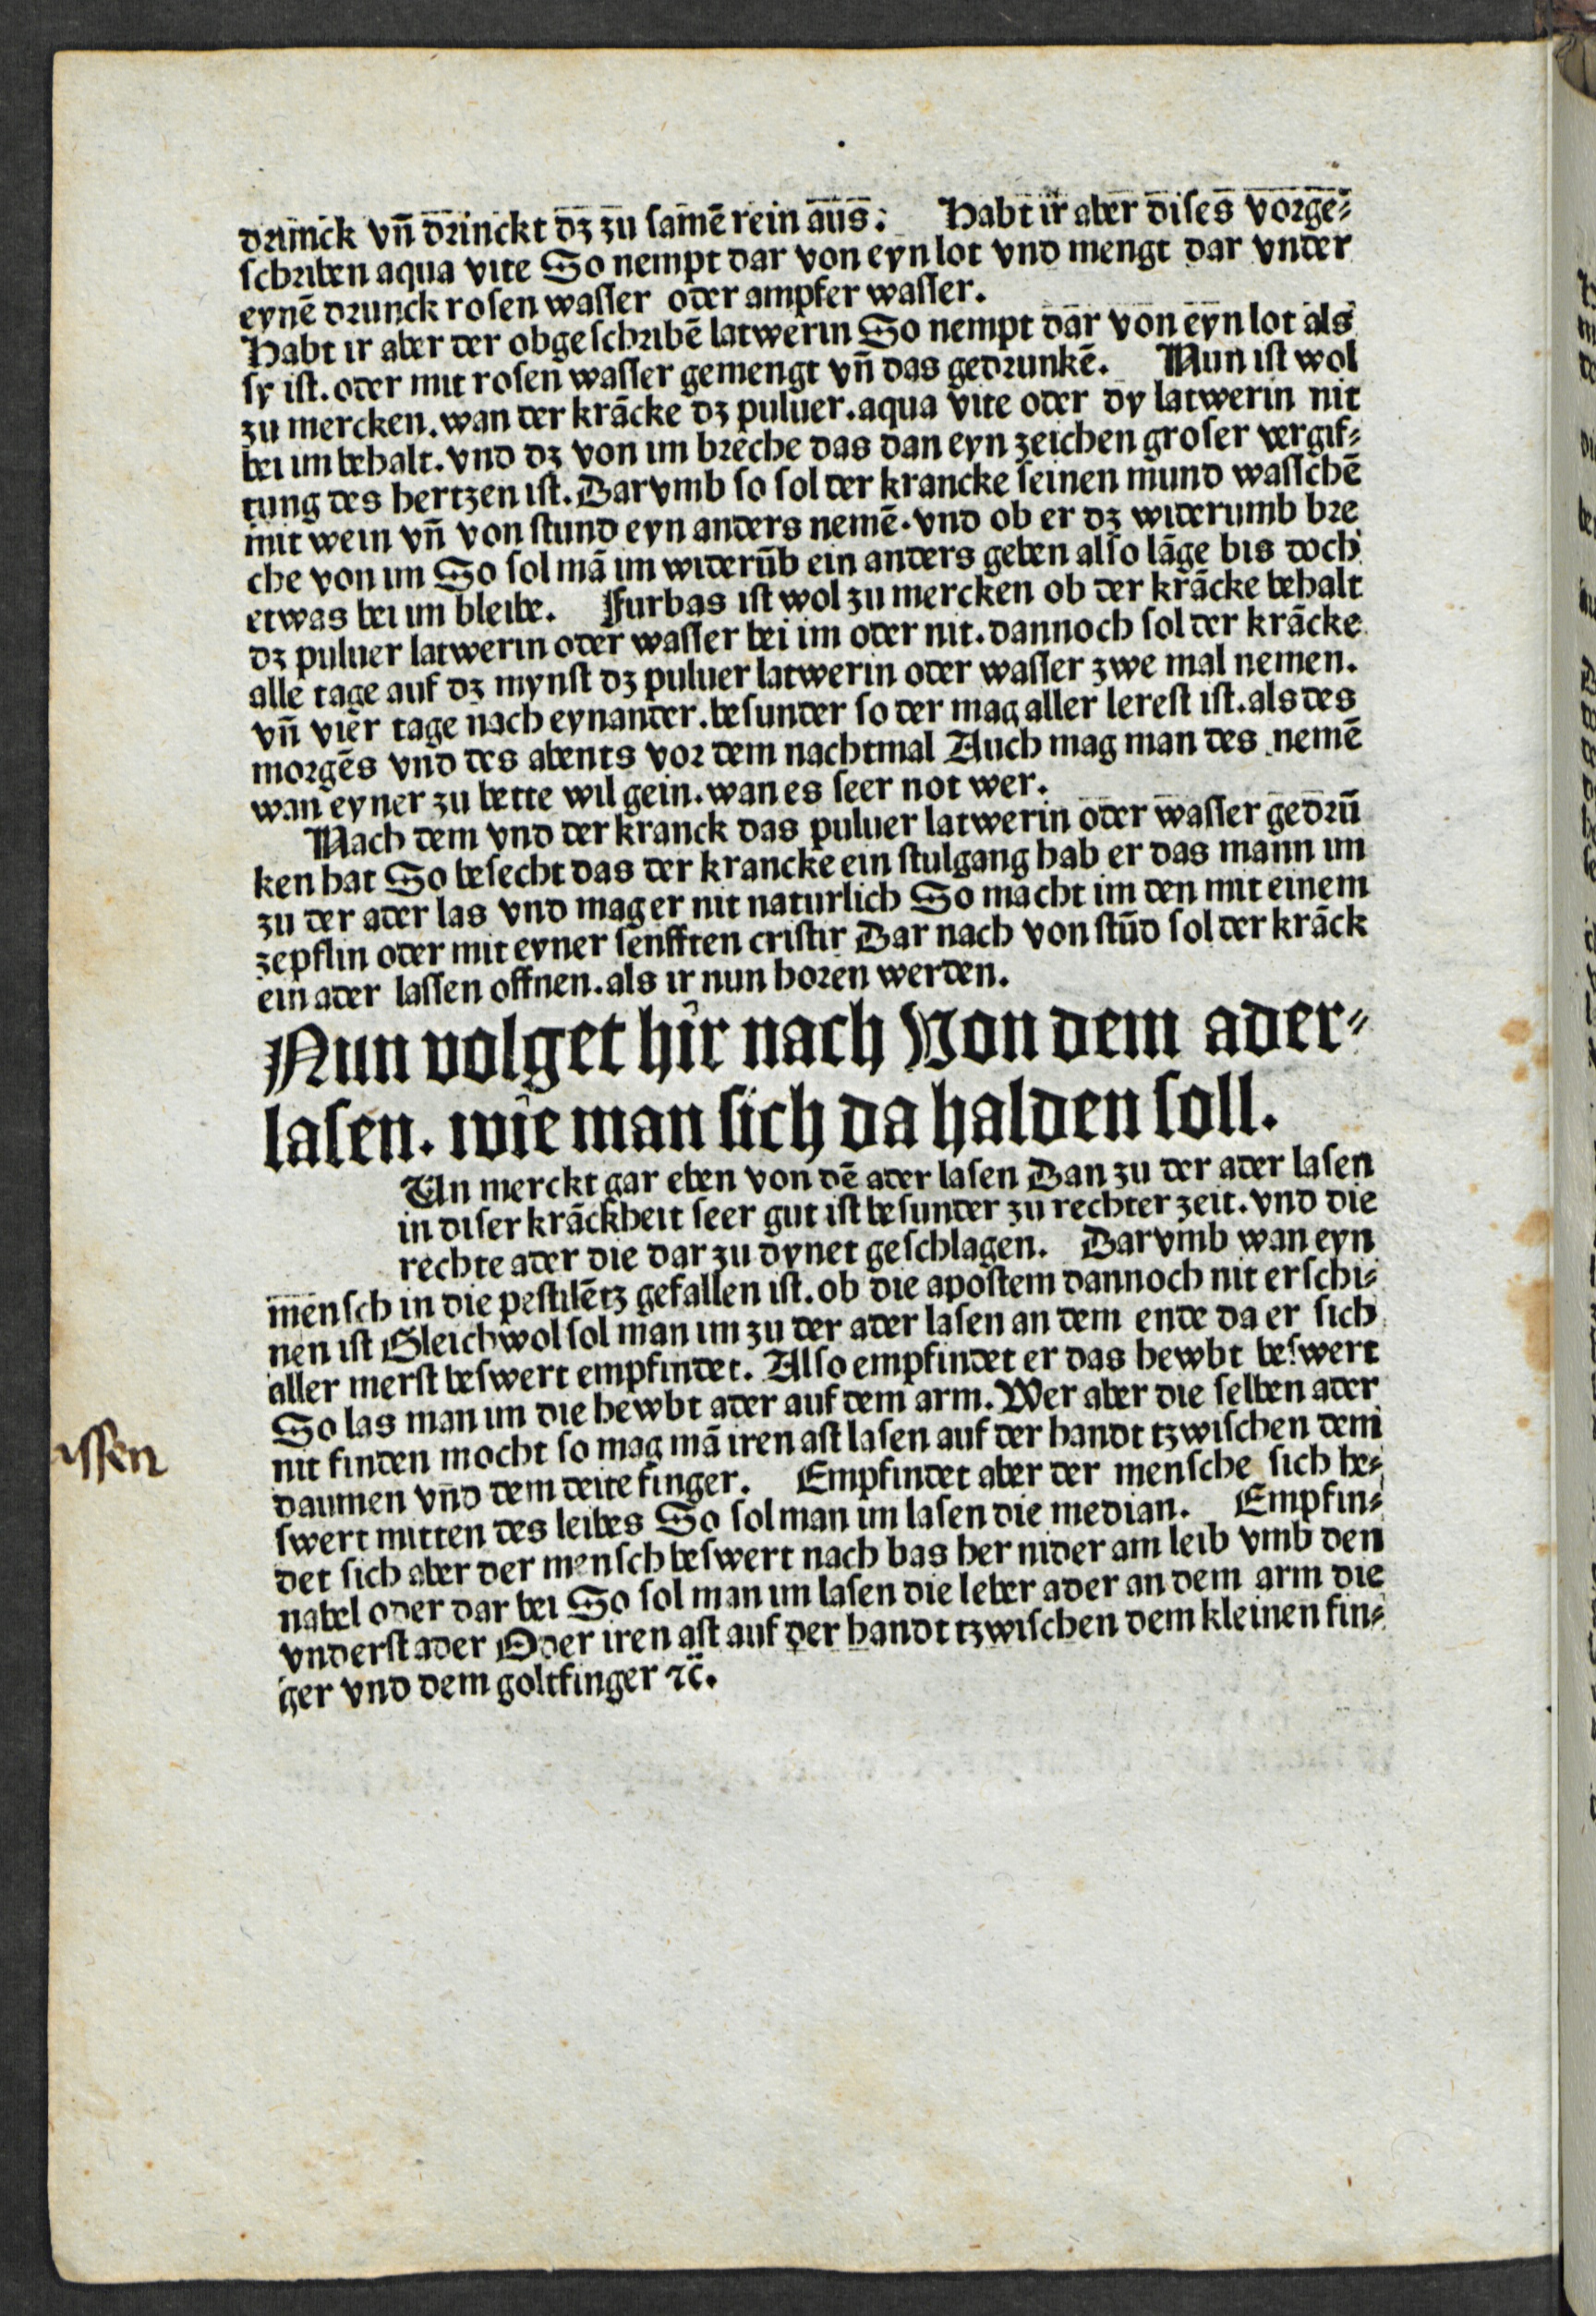 drinck vn̄ drinckt dz zu samē rein aus. Habt ir aber dises vorge⸗
schriben aqua vite So nempt dar von eyn lot vnd mengt dar vnder
eynē drunck rosen wasser oder ampfer wasser.
Habt ir aber der obgeschribē latwerin So nempt dar von eyn lot als
sy ist. oder mit rosen wasser gemengt vn̄ das gedrunkē. Nun ist wol
zu mercken. wan der krācke dz puluer. aqua vite oder dy latwerin nit
bei im behalt. vnd dz von im breche das dan eyn zeichen groser vergif⸗
tung des hertzen ist. Darvmb so sol der krancke seinen mund wasschē
mit wein vn̄ von stund eyn anders nemē. vnd ob er dz widerumb bre
che von im So sol mā im widerūb ein anders geben also lāge bis doch
etwas bei im bleibe. Furbas ist wol zu mercken ob der krācke behalt
dz puluer latwerin oder wasser bei im oder nit. dannoch sol der krācke
alle tage auf dz mynst dz puluer latwerin oder wasser zwe mal nemen.
vn̄ vier tage nach eynander. besunder so der mag aller lerest ist. als des
morgēs vnd des abents vor dem nachtmal Auch mag man des nemē
wan eyner zu bette wil gein. wan es seer not wer.
Nach dem vnd der kranck das puluer latwerin oder wasser gedrū
ken hat So besecht das der krancke ein stulgang hab er das mann im
zu der ader las vnd mag er nit naturlich So macht im den mit einem
zepflin oder mit eyner senfften cristir Dar nach von stūd sol der krāck
ein ader lassen offnen. als ir nun horen werden.
Nun volget hir nach Von dem ader⸗
lasen. wie man sich da halden soll.
Un merckt gar eben von dē ader lasen Dan zu der ader lasen
in diser krāckheit seer gut ist besunder zu rechter zeit. vnd die
rechte ader die dar zu dynet geschlagen. Darvmb wan eyn
mensch in die pestilētz gefallen ist. ob die apostem dannoch nit erschi⸗
nen ist Gleichwol sol man im zu der ader lasen an dem ende da er sich
aller merst beswert empfindet. Also empfindet er das hewbt beswert
So las man im die hewbt ader auf dem arm. Wer aber die selben ader
nit finden mocht so mag mā iren ast lasen auf der handt tzwischen dem
daumen vn̄d dem deite finger. Empfindet aber der mensche sich be⸗
swert mitten des leibes So sol man im lasen die median. Empfin⸗
det sich aber der mensch beswert nach bas her nider am leib vmb den
nabel oder dar bei So sol man im lasen die leber ader an dem arm die
vnderst ader Oder iren ast auf der handt tzwischen dem kleinen fin⸗
ger vnd dem goltfinger ⁊c̄.
issen